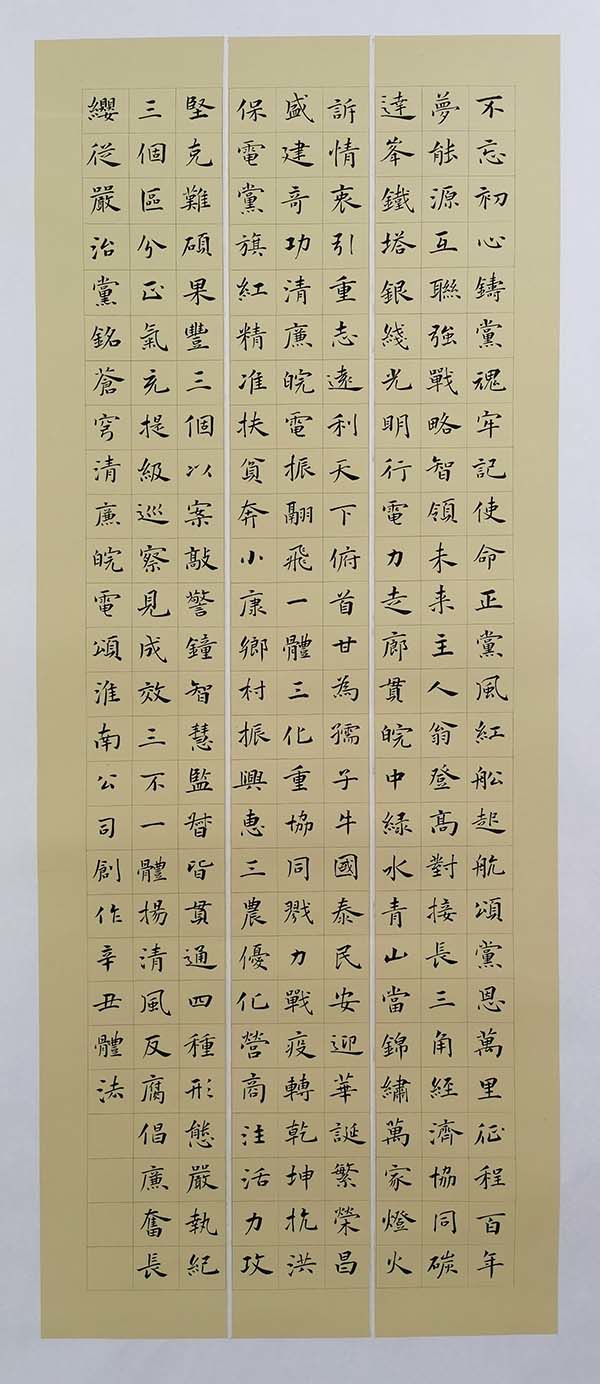 不忘初心鑄黨魂牢記使命正黨風紅舩起航頌黨恩萬里征程百年
夢能源互聯強戰略智領未来主人翁登髙對接長三角經濟協同碳
達峯鐵塔銀綫光明行電力走廊貫皖中緑水青山當錦繡萬家燈火
訴情衷引重志遠利天下俯首甘為孺子牛國泰民安迎華誕繁榮昌
盛建奇功清廉皖電振翮飛一體三化重協同戮力戰疫轉乾坤抗洪
保電黨旗紅精准扶貧奔小康鄉村振興惠三農優化營商注活力攻
堅克難碩果豐三個以案敲警鐘智慧監督皆貫通四種形態嚴執紀
三個區分正氣充提級巡察見成效三不一體揚清風反腐倡廉奮長
纓從嚴治黨銘蒼穹清廉皖電頌淮南公司創作辛丑體法